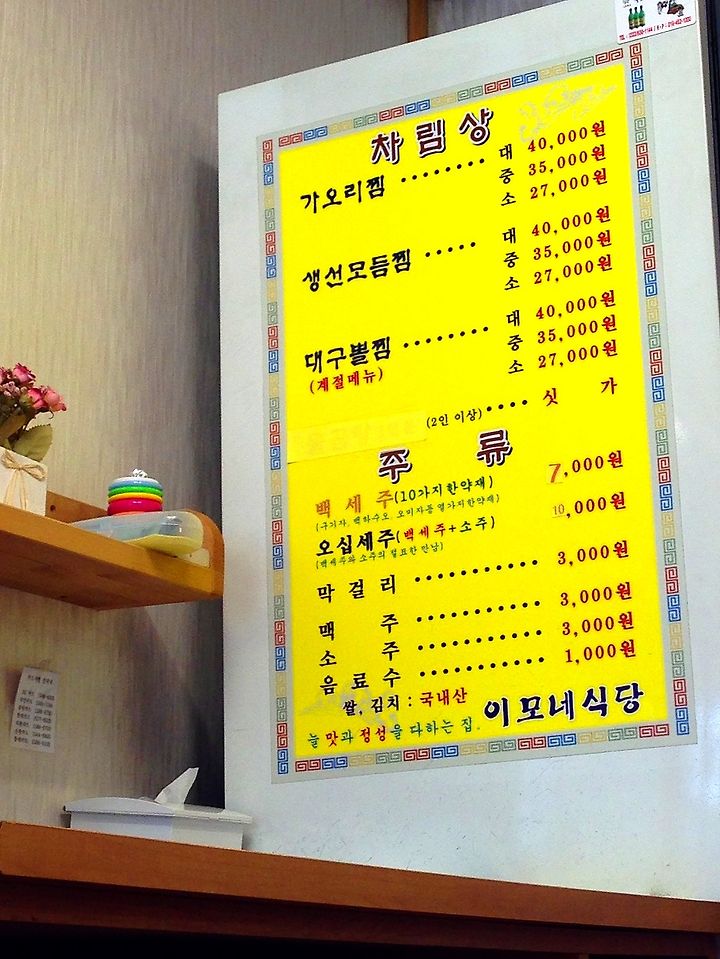 차림상
가오리찜 ........ 대 40,000원
중 35,000원
소 27,000원
생선모듬찜 ..... 대 40,000원
중 35,000원
소 27,000원
대구뽈찜 ........ 대 40,000원
(계절메뉴) 중 35,000원
소 27,000원
(2인 이상) .... 싯 가
주 류
백세주(10가지한약재) 7,000원
(구기자, 백하수오, 오미자등 열가지한약재)
오십세주(백세주+소주) 10,000원
(백세주와 소주의 절묘한 만남)
막걸리 ........... 3,000원
맥 주 ........... 3,000원
소 주 ........... 3,000원
음료수 ........... 1,000원
쌀, 김치 : 국내산
늘 맛과 정성을 다하는 집. 이모네식당